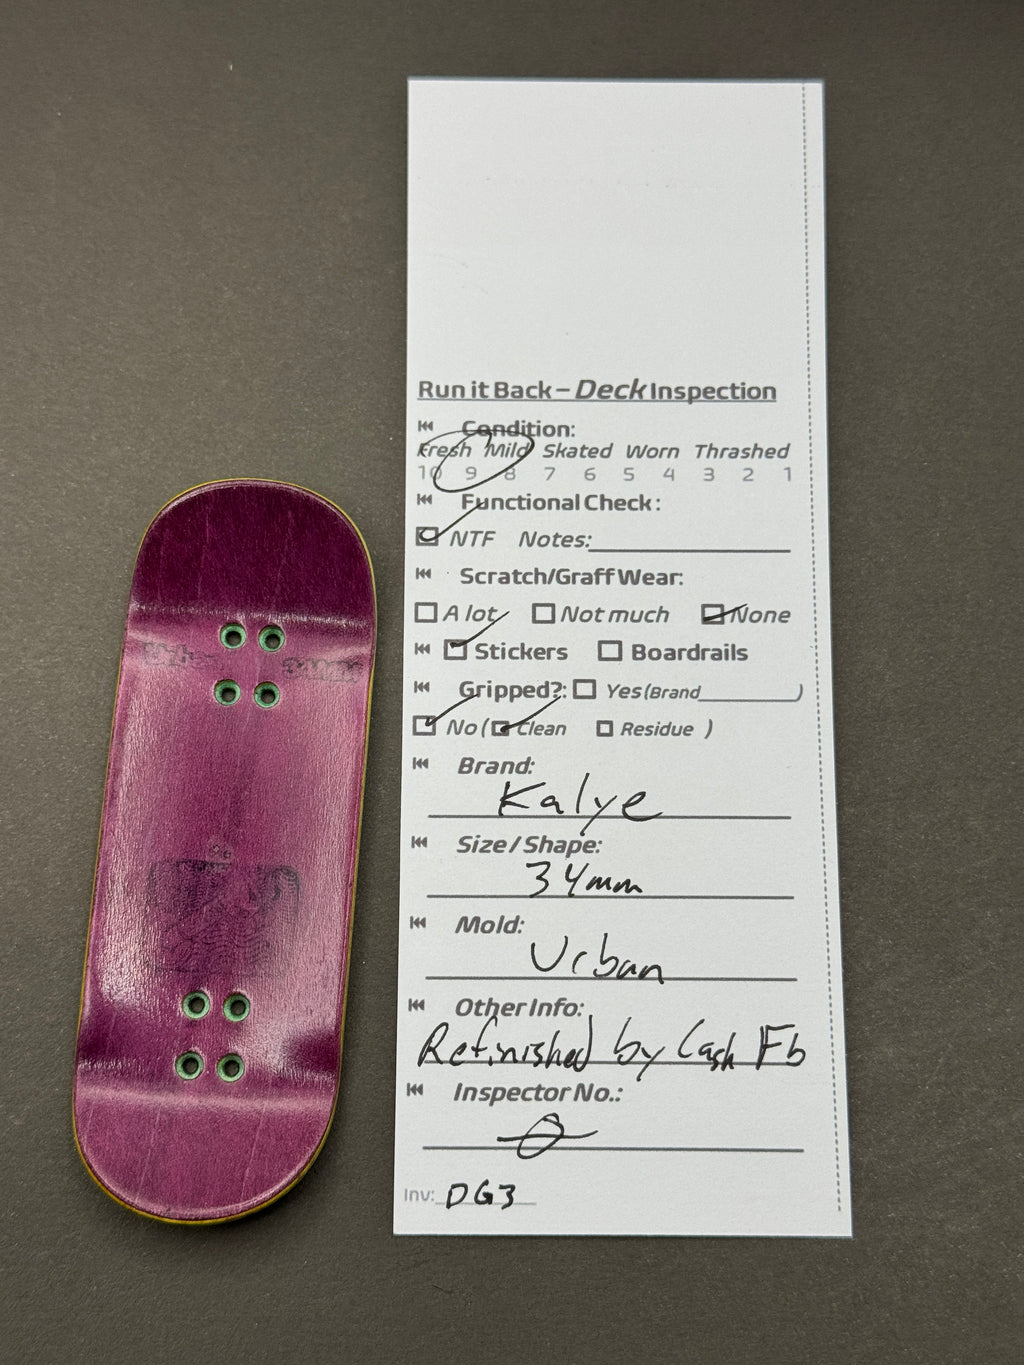 Run it Back – Deck Inspection
Condition:
Fresh Mild Skated Worn Thrashed
10 9 8 7 6 5 4 3 2 1
Functional Check:
NTF Notes:
Scratch/Graff Wear:
A lot Not much None
Stickers Boardrails
Gripped?: Yes (Brand )
No ( Clean Residue )
Brand:
Kalye
Size / Shape:
34mm
Mold:
Urban
Other Info:
Refinished by Cash Fb
Inspector No.:
Inv: DG3